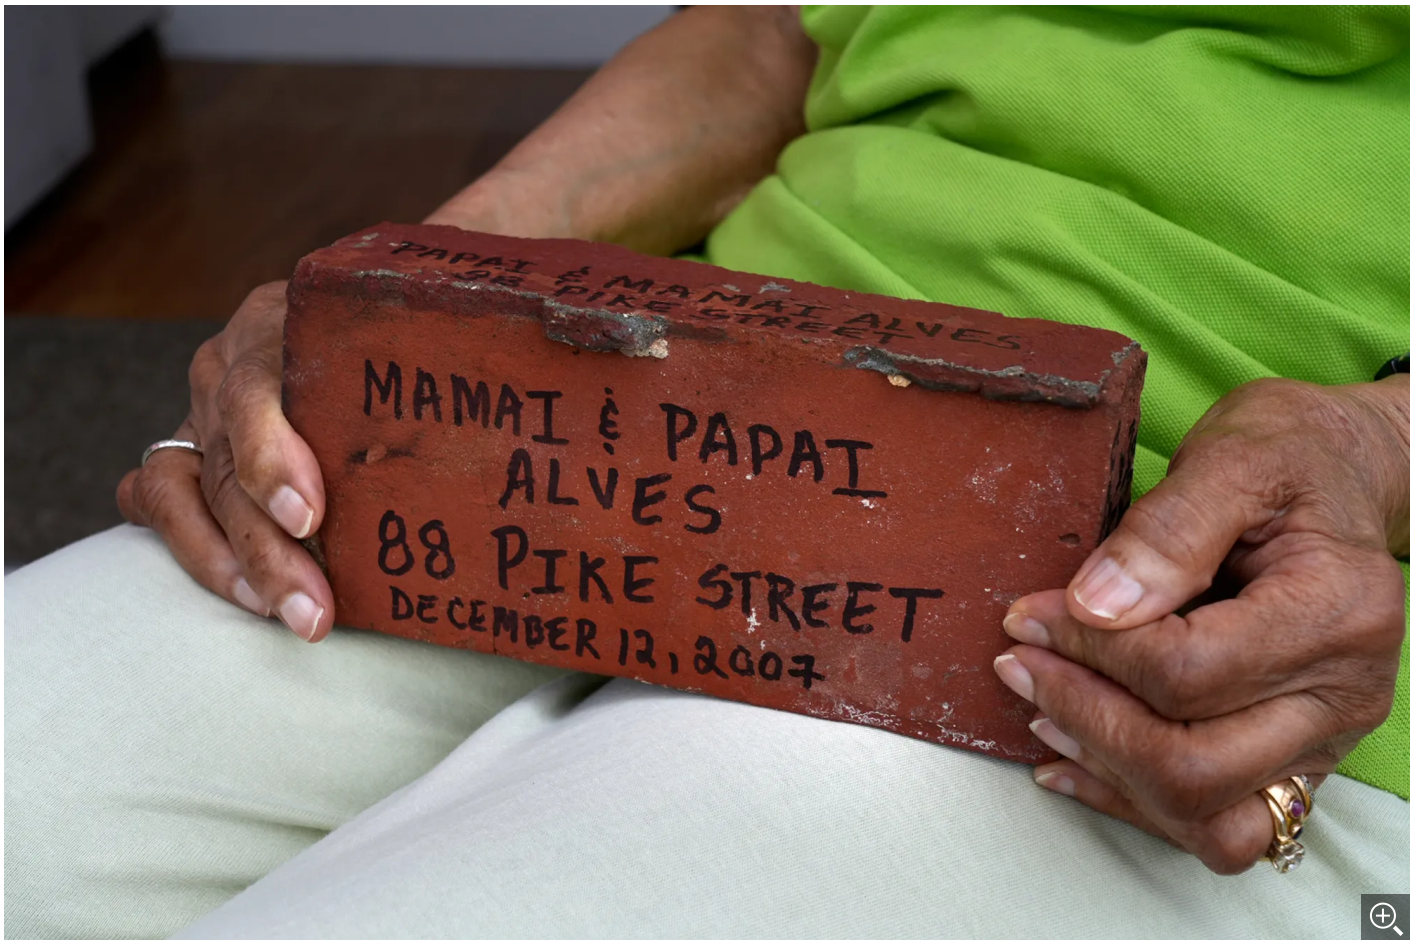 PAPAI & MAMAI ALVES
88 PIKE STREET
MAMAI & PAPAI
ALVES
88 PIKE STREET
DECEMBER 12, 2007